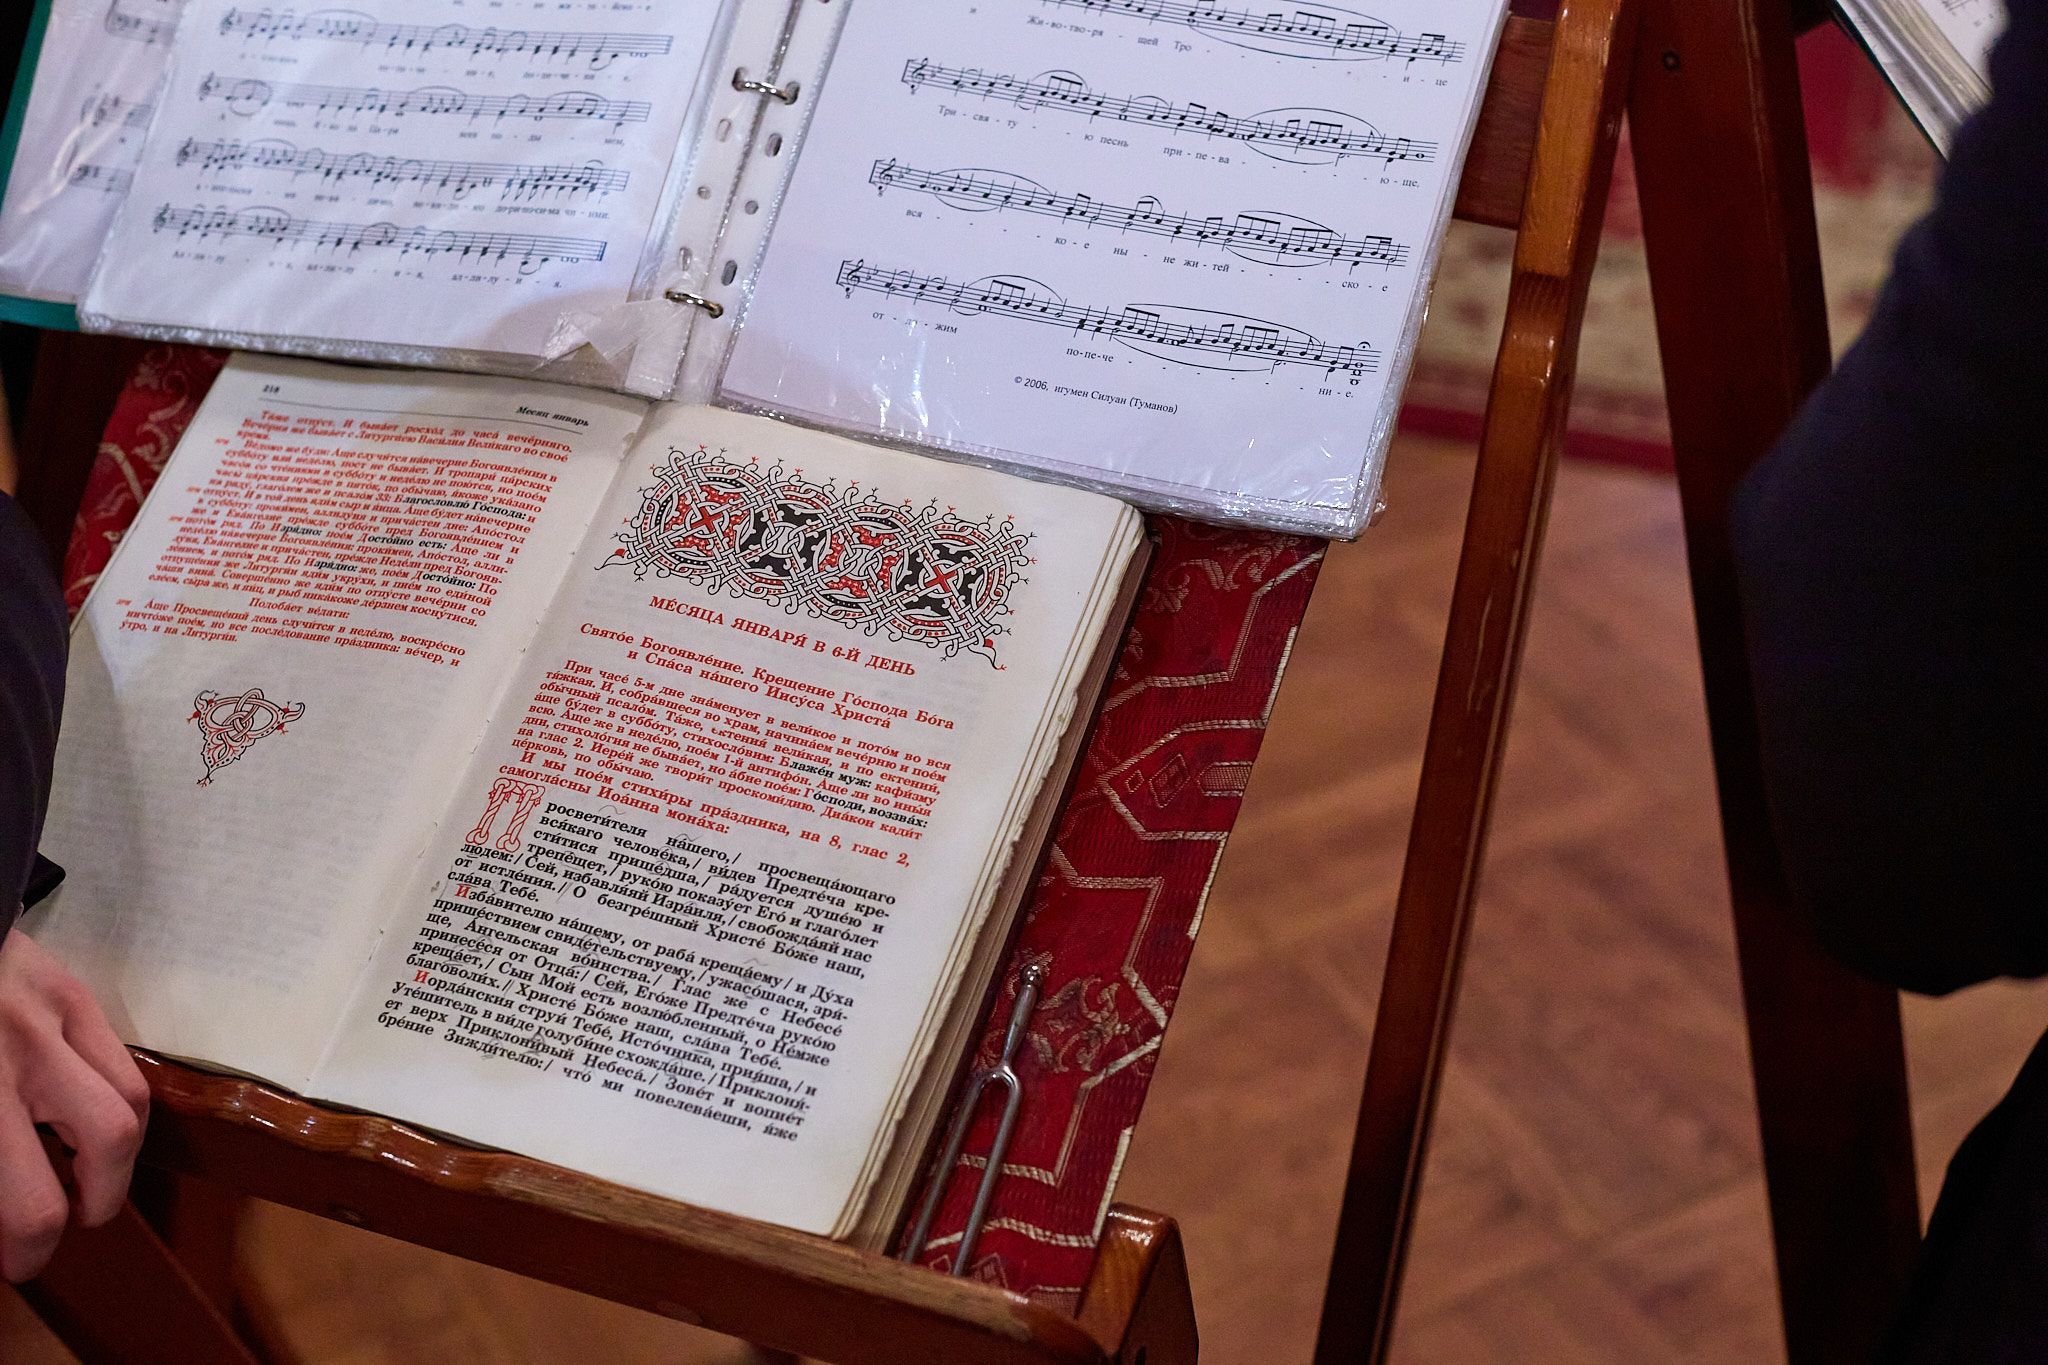 и Жи-во-тво-ря - щей Тро - и - це
Три - свя - ту - ю песнь при - пе - ва - ю - ще,
вся - ко - е ны - не жи - тей - ско - е
от - ло - жим
по-пе-че - ни - е.
© 2006, игумен Силуан (Туманов)
218 Месяц январь
Та́же отпу́ст. И быва́ет росхо́д до часа́ вече́рняго.
Вече́рня же быва́ет с Литурги́ею Васи́лия Вели́каго во свое́
вре́мя.
Ве́домо же бу́ди: А́ще случи́тся наве́черие Богоявле́ния в
суббо́ту или неде́лю, пост не быва́ет. И тропари́ ца́рских
часо́в со чте́ниями в суббо́ту и неде́лю не пою́тся, но пое́м
часы́ ца́рския пре́жде в пято́к, по обы́чаю, я́коже ука́зано
на ряду́, глаго́лем же и псало́м 33: Благословлю́ Го́спода: и
отпу́ст. И в той день яди́м сыр и я́йца. А́ще бу́дет наве́черие
в суббо́ту: проки́мен, аллилу́ия и прича́стен дне; Апо́стол
же и Ева́нгелие пре́жде суббо́те пред Богоявле́нием и
пото́м ряд. По Изря́дно: пое́м Досто́йно есть: А́ще ли в
неде́лю наве́черие Богоявле́ния: проки́мен, Апо́стол, алли-
лу́ия, Ева́нгелие и прича́стен, пре́жде Неде́ли пред Богояв-
ле́нием, и пото́м ряд. По Изря́дно: же, пое́м Досто́йно: По
отпуще́нии же Литурги́и яди́м укру́хи, и пие́м по еди́ной
ча́ши вина́. Соверше́нно же яди́м по отпу́сте вече́рни со
еле́ем, сы́ра же, и яи́ц, и рыб ника́коже де́рзнем косну́тися.
Подоба́ет ве́дати:
А́ще Просвеще́ний день случи́тся в неде́лю, воскре́сно
ничто́же пое́м, но все после́дование пра́здника: ве́чер, и
у́тро, и на Литурги́и.
МЕ́СЯЦА ЯНВАРЯ́ В 6-Й ДЕНЬ
Свято́е Богоявле́ние. Крещение Го́спода Бо́га
и Спа́са на́шего Иису́са Христа́
При часе́ 5-м дне зна́менует в вели́кое и пото́м во вся
тя́жкая. И, собра́вшеся во храм, начина́ем вече́рню и пое́м
обы́чный псало́м. Та́же, ектения́ вели́кая, и по ектении́,
а́ще бу́дет в суббо́ту, стихосло́вим: Блаже́н муж: кафи́зму
всю. А́ще же в неде́лю, пое́м 1-й антифо́н. А́ще ли во ины́я
дни, стихоло́гия не быва́ет, но а́бие пое́м: Го́споди, воззва́х:
на глас 2. Иере́й же твори́т проскоми́дию. Диа́кон кади́т
це́рковь, по обы́чаю.
И мы пое́м стихи́ры пра́здника, на 8, глас 2,
самогла́сны Иоа́нна мона́ха:
Просвети́теля на́шего,/ просвеща́ющаго
вся́каго челове́ка,/ ви́дев Предте́ча кре-
сти́тися прише́дша,/ ра́дуется душе́ю и
трепе́щет,/ руко́ю показу́ет Его́ и глаго́лет
лю́дем:/ Сей, избавля́яй Изра́иля,/ свобожда́яй нас
от истле́ния.// О безгре́шный Христе́ Бо́же наш,
сла́ва Тебе́.
Изба́вителю на́шему, от раба́ креща́ему,/ и Ду́ха
прише́ствием свиде́тельствуему,/ ужасо́шася, зря́-
ще, А́нгельская во́инства./ Глас же с Небесе́
принесе́ся от Отца́:/ Сей, Его́же Предте́ча руко́ю
креща́ет,/ Сын Мой есть возлю́бленный, о Не́мже
благоволи́х.// Христе́ Бо́же наш, сла́ва Тебе́.
Иорда́нския струи́ Тебе́, Исто́чника, прия́ша,/ и
Уте́шитель в ви́де голуби́не схожда́ше./ Приклоня́-
ет верх Приклони́вый Небеса́./ Зове́т и вопие́т
бре́ние Зижди́телю:/ что́ ми повелева́еши, я́же